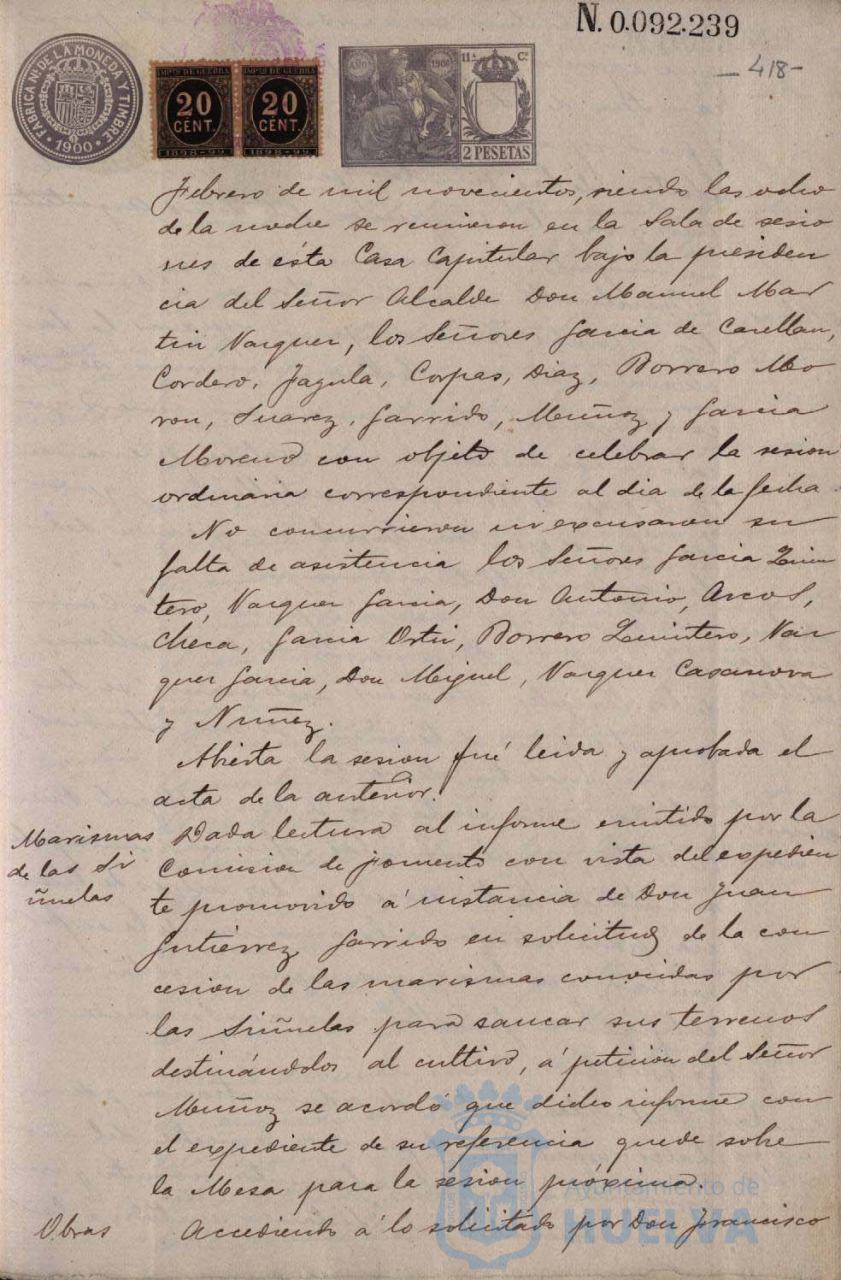 N. 0.092.239
FABRICA NL DE LA MONEDA Y TIMBRE
1900
IMPTO DE GUERRA
20
CENT.
1898-99
IMPTO DE GUERRA
20
CENT.
1898-99
AÑO
1900
11ª Cª
2 PESETAS
-418-
Febrero de mil novecientos, siendo las ocho
de la noche se reunieron en la Sala de sesio
nes de ésta Casa Capitular bajo la presiden
cia del Señor Alcalde Don Manuel Mar
tin Vazquez, los Señores Garcia de
Cordero, Jagula, Corpas, Diaz, Borrero Mo
ron, Suarez, Garrido, Muñoz y Garcia
Moreno con objeto de celebrar la sesion
ordinaria correspondiente al dia de la fecha.
No concurrieron ni excusaron su
falta de asistencia los Señores Garcia Quin
tero, Vazquez Garcia, Don Antonio, Arcos,
Checa, Garcia Ortiz, Borrero Quintero, Vaz
quez Garcia, Don Miguel, Vazquez Casanova
y Nuñez.
Abierta la sesion fué leida y aprobada el
acta de la anterior.
Marismas
de las Si
ñuelas
Dada lectura al informe emitido por la
Comision de fomento con vista del expedien
te promovido á instancia de Don Juan
Gutiérrez Garrido en solicitud de la con
cesion de las marismas conocidas por
las Siñuelas para sanear sus terrenos
destinándolos al cultivo, á peticion del Señor
Muñoz se acordó que dicho informe con
el expediente de su referencia quede sobre
la Mesa para la sesion próxima.
Obras
Accediendo á lo solicitado por Don Francisco
Ayuntamiento de
HUELVA